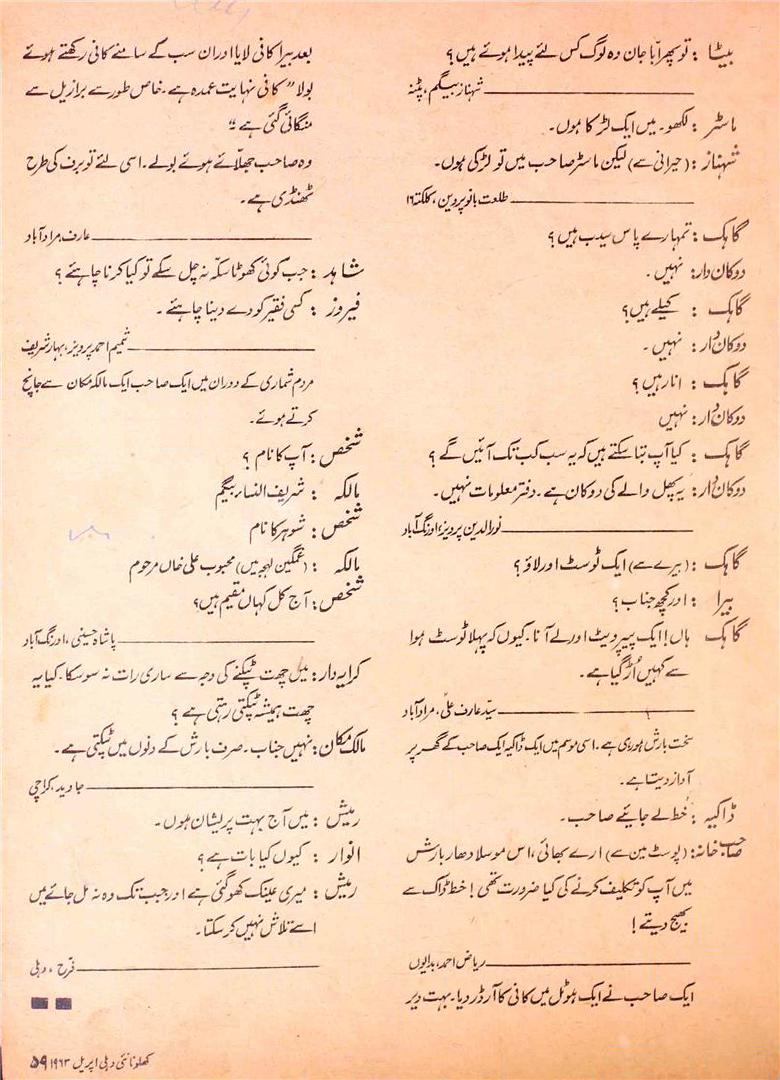 بیٹا : تو پھر ابّا جان وہ لوگ کس لئے پیدا ہوئے ہیں؟
شہناز بیگم، پٹنہ
ماسٹر : لکھو۔ میں ایک لڑکا ہوں۔
شہناز : (حیرانی سے) لیکن ماسٹر صاحب میں تو لڑکی ہوں۔
طلعت بانو پروین، کلکتہ ۱۶
گاہک : تمہارے پاس سیب ہیں؟
دوکان دار : نہیں۔
گاہک : کیلے ہیں؟
دوکان دار : نہیں۔
گاہک : انار ہیں؟
دوکان دار : نہیں
گاہک : کیا آپ بتا سکتے ہیں کہ یہ سب کب تک آئیں گے؟
دوکان دار : یہ پھل والے کی دوکان ہے۔ دفتر معلومات نہیں۔
نورالدین پرویز، اورنگ آباد
گاہک : (بیرے سے) ایک ٹوسٹ اور لاؤ؟
بیرا : اور کچھ جناب؟
گاہک : ہاں! ایک پیپر ویٹ اور لے آنا۔ کیوں کہ پہلا ٹوسٹ ہوا
سے کہیں اُڑ گیا ہے۔
سیّد عارف علی، مراد آباد
سخت بارش ہو رہی ہے۔ اسی موسم میں ایک ڈاکیہ ایک صاحب کے گھر پر
آواز دیتا ہے۔
ڈاکیہ : خط لے جائیے صاحب۔
صاحب خانہ : (پوسٹ مین سے) ارے بھائی، اس موسلا دھار بارش
میں آپ کو تکلیف کرنے کی کیا ضرورت تھی! خط ڈاک سے
بھیج دیتے!
ریاض احمد، بدایوں
ایک صاحب نے ایک ہوٹل میں کافی کا آرڈر دیا۔ بہت دیر
بعد بیرا کافی لایا اور ان سب کے سامنے کافی رکھتے ہوئے
بولا "کافی نہایت عمدہ ہے۔ خاص طور سے برازیل سے
منگائی گئی ہے"
وہ صاحب جھلّائے ہوئے بولے۔ اسی لئے تو برف کی طرح
ٹھنڈی ہے۔
عارف، مراد آباد
شاہد : جب کوئی کھوٹا سکّہ نہ چل سکے تو کیا کرنا چاہئے؟
فیروز : کسی فقیر کو دے دینا چاہئے۔
شمیم احمد پرویز، بہار شریف
مردم شماری کے دوران میں ایک صاحب ایک مالکہ مکان سے جانچ
کرتے ہوئے۔
شخص : آپ کا نام؟
مالکہ : شریف النساء بیگم
شخص : شوہر کا نام
مالکہ : (غمگین لہجہ میں) محبوب علی خاں مرحوم
شخص : آج کل کہاں مقیم ہیں؟
پاشاہ حسینی، اورنگ آباد
کرایہ دار : میں چھت ٹپکنے کی وجہ سے ساری رات نہ سو سکا۔ کیا یہ
چھت ہمیشہ ٹپکتی رہتی ہے؟
مالک مکان : نہیں جناب۔ صرف بارش کے دنوں میں ٹپکتی ہے۔
جاوید، کراچی
رمیش : میں آج بہت پریشان ہوں۔
انوار : کیوں کیا بات ہے؟
رمیش : میری عینک کھو گئی ہے اور جب تک وہ نہ مل جائے میں
اسے تلاش نہیں کر سکتا۔
فرح، دہلی
کھلونا نئی دہلی اپریل ۱۹۶۳ ۵۹